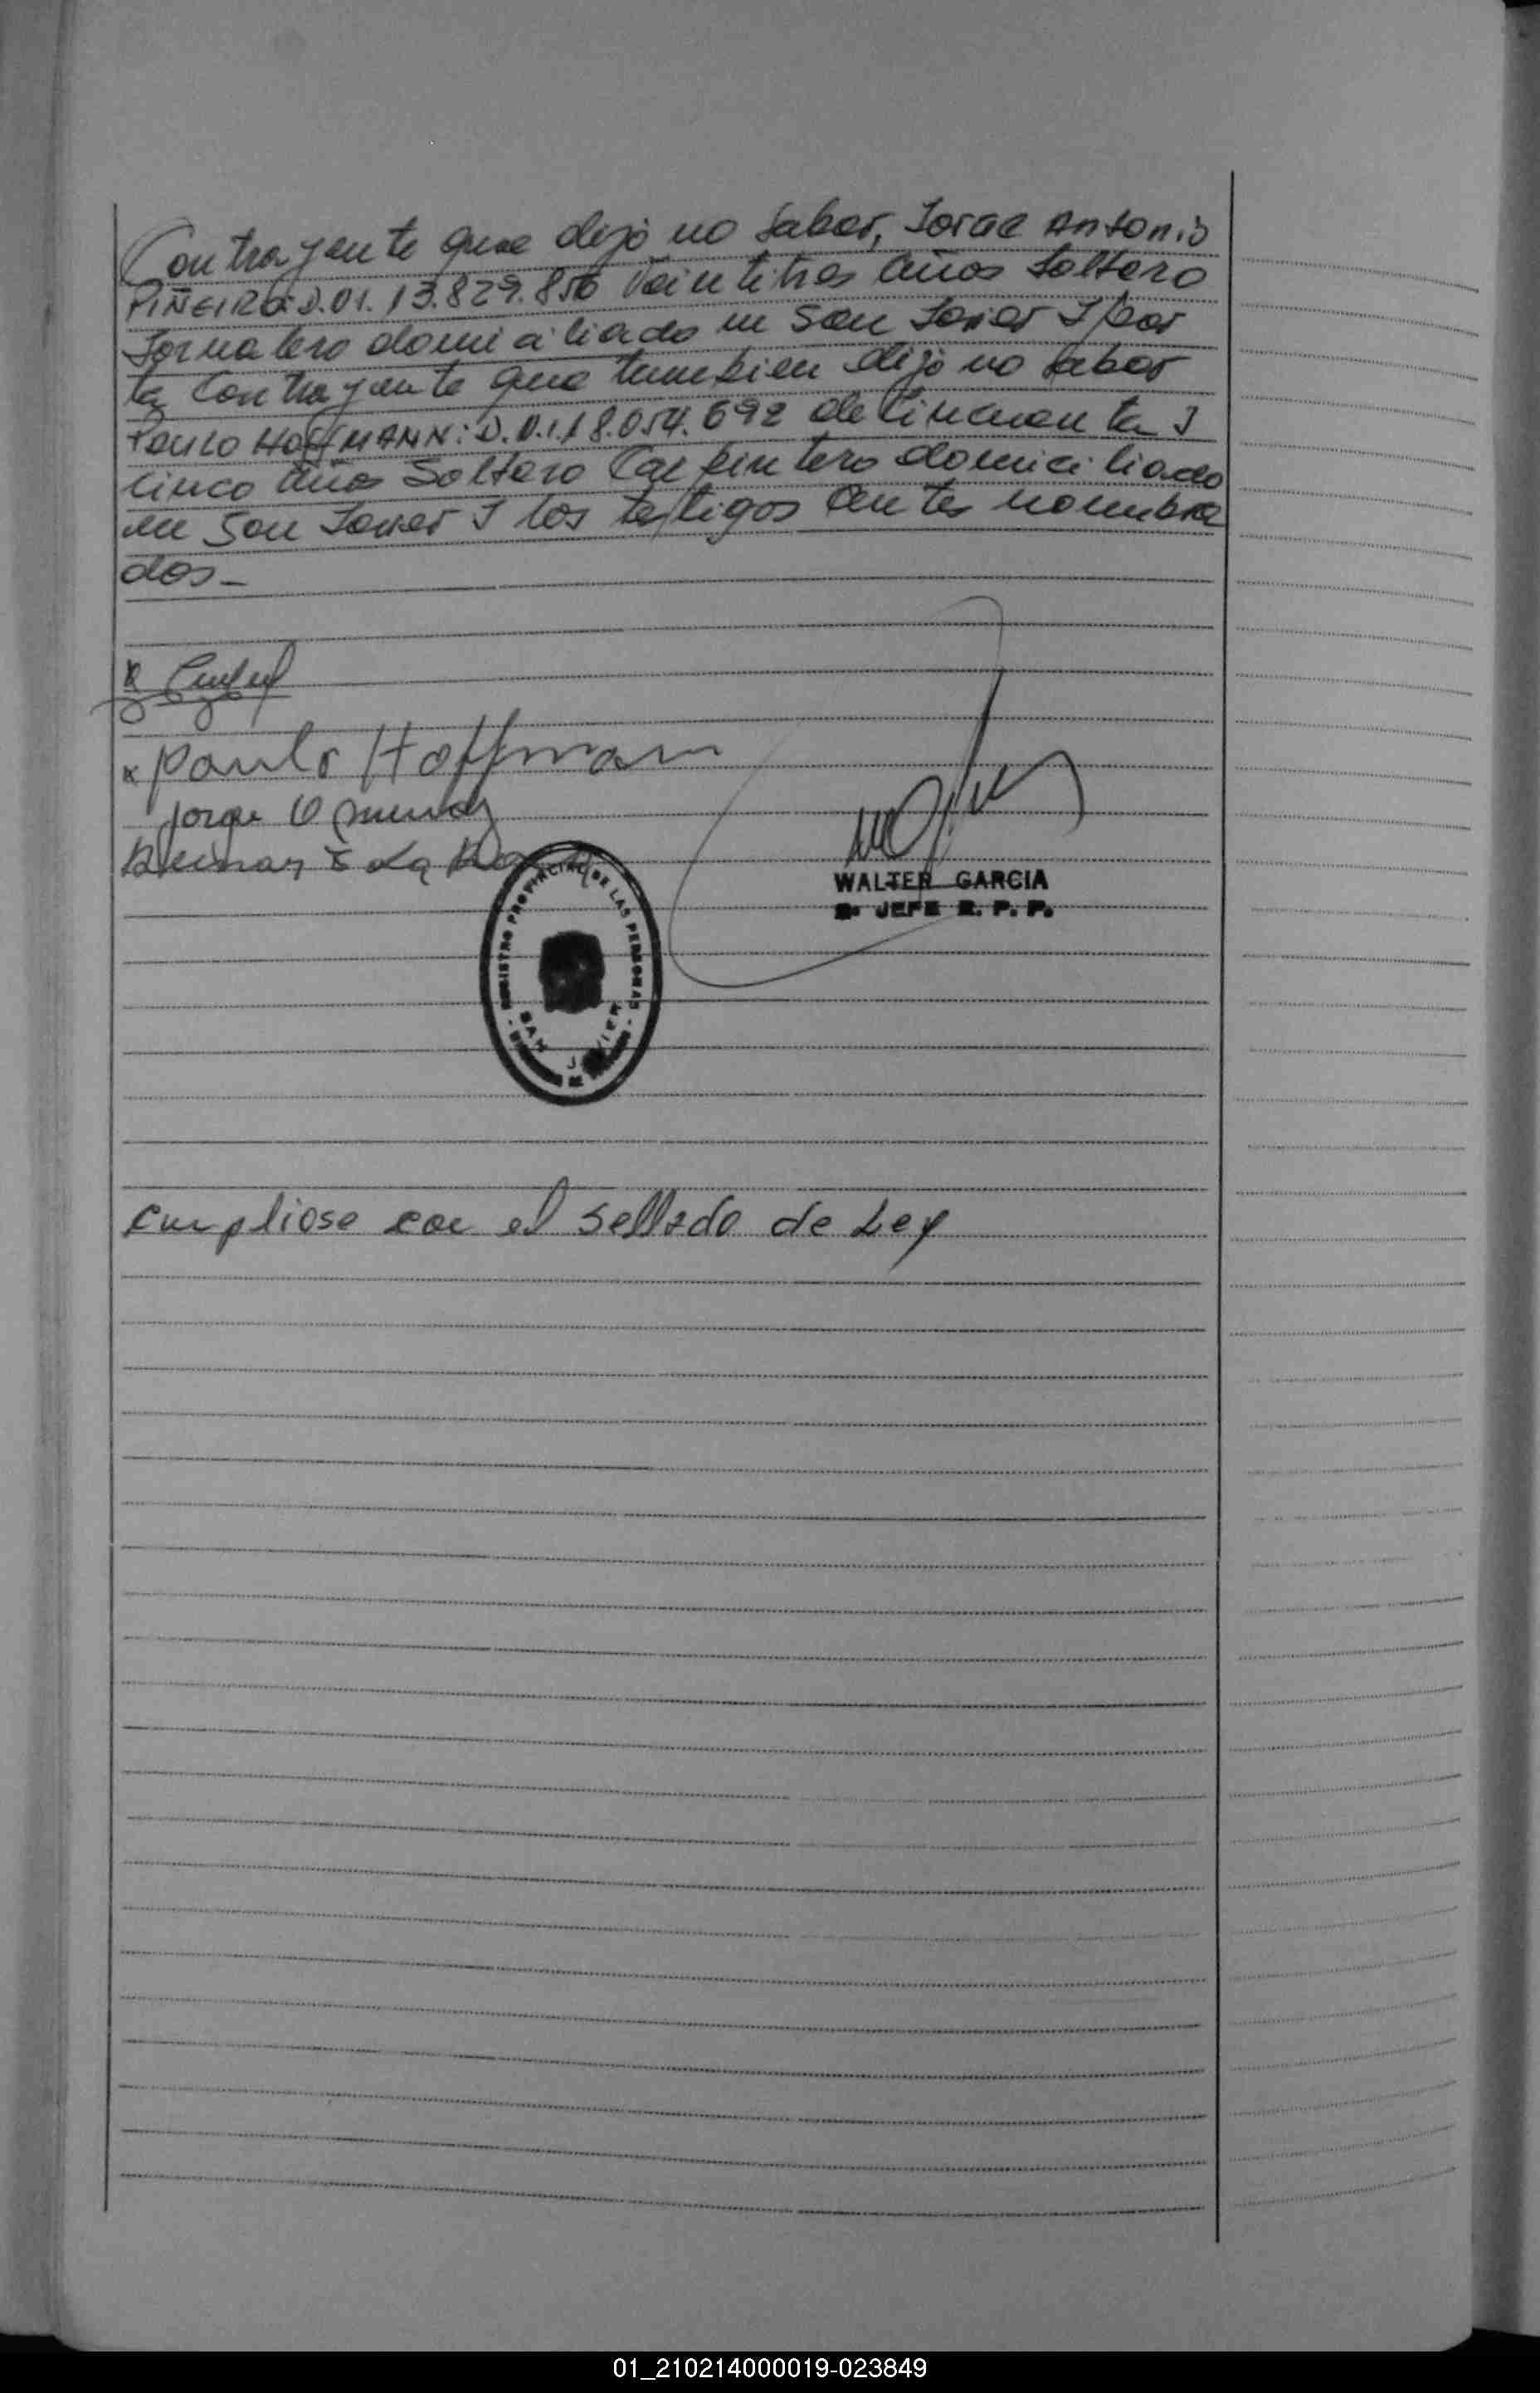 Contrayente que dijo no saber, Jorge Antonio
PIÑEIRO: D.OI. 13.829.856 Veintitres años soltero
Jornalero domiciliado en San Javier y por
la Contrayente que tambien dijo no saber
Paulo HOFFMANN: D.N.I. 18.054.692 de Cincuenta y
cinco años Soltero Carpintero domiciliado
en San Javier y los testigos antes nombra
dos.-
x
x Paulo Hoffmann
Jorge O
WALTER GARCIA
JEFE R. P. P.
REGISTRO PROVINCIAL DE LAS PERSONAS
SAN JAVIER
Cumpliose con el Sellado de Ley
01_210214000019-023849